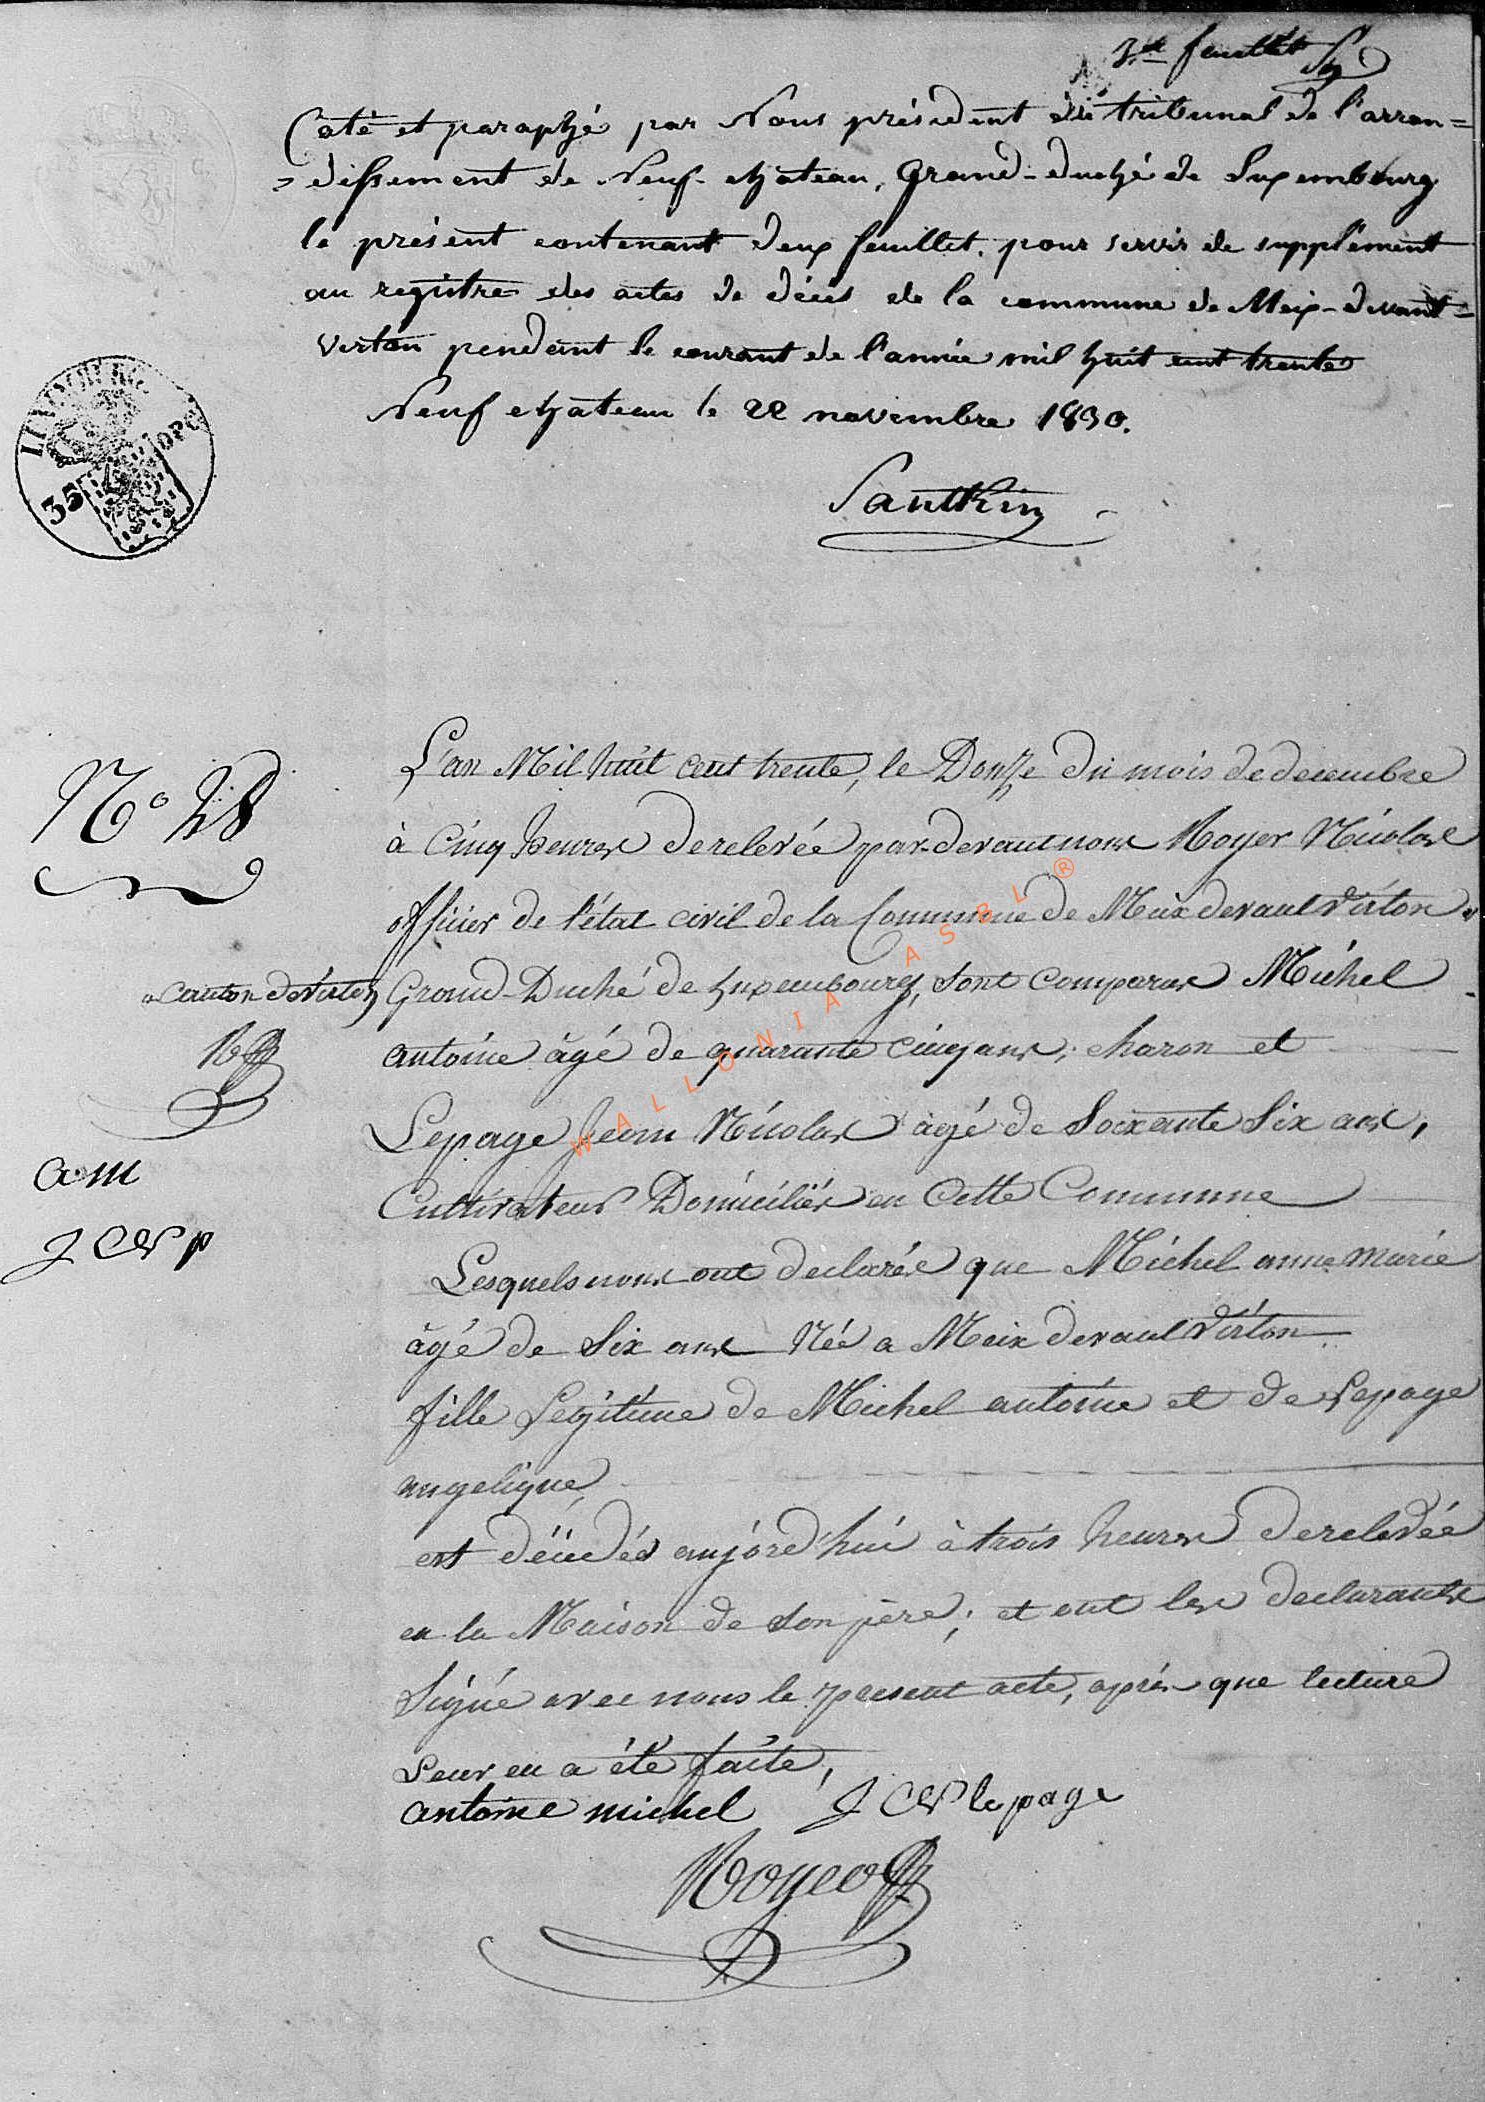 3.me feuillet
Coté et paraphé par Nous président du tribunal de l'arron=
=dissement de Neuf-chateau, Grand-duché de Luxembourg
le présent contenant deux feuillet, pour servir de supplément
au registre des actes de décès de la commune de Meix-devant=
Virton pendant le courant de l'année mil huit cent trente
Neufchateau le 22 novembre 1830.
Santkin
LUXEMBURG
35
N.o 28
L'an Mil huit cent trente, le Douze du mois de decembre
à Cinq heures de relevée par-devant nous Royer Nicolas
officier de l'état civil de la Commune de Meix devant Virton
canton de Virton
Grand-Duché de Luxembourg, sont comparus Michel
antoine âgé de quarante cinq ans, charon et
Lepage Jean Nicolas âgé de Soixante Six ans,
Cultivateur Domiciliés en Cette Commune
Lesquels nous ont declaré que Michel anne marie
âgé de Six ans Née a Meix devant Virton
fille Legitime de Michel antoine et de Lepage
angelique
est décédé aujord'hui à trois heures de relevée
en la Maison de son père; et ont les declarants
Signé avec nous le present acte, après que lecture
Leur en a été faite,
am
J C N p
antoine michel J C N lepage
Royer
WALLONIA ASBL ®